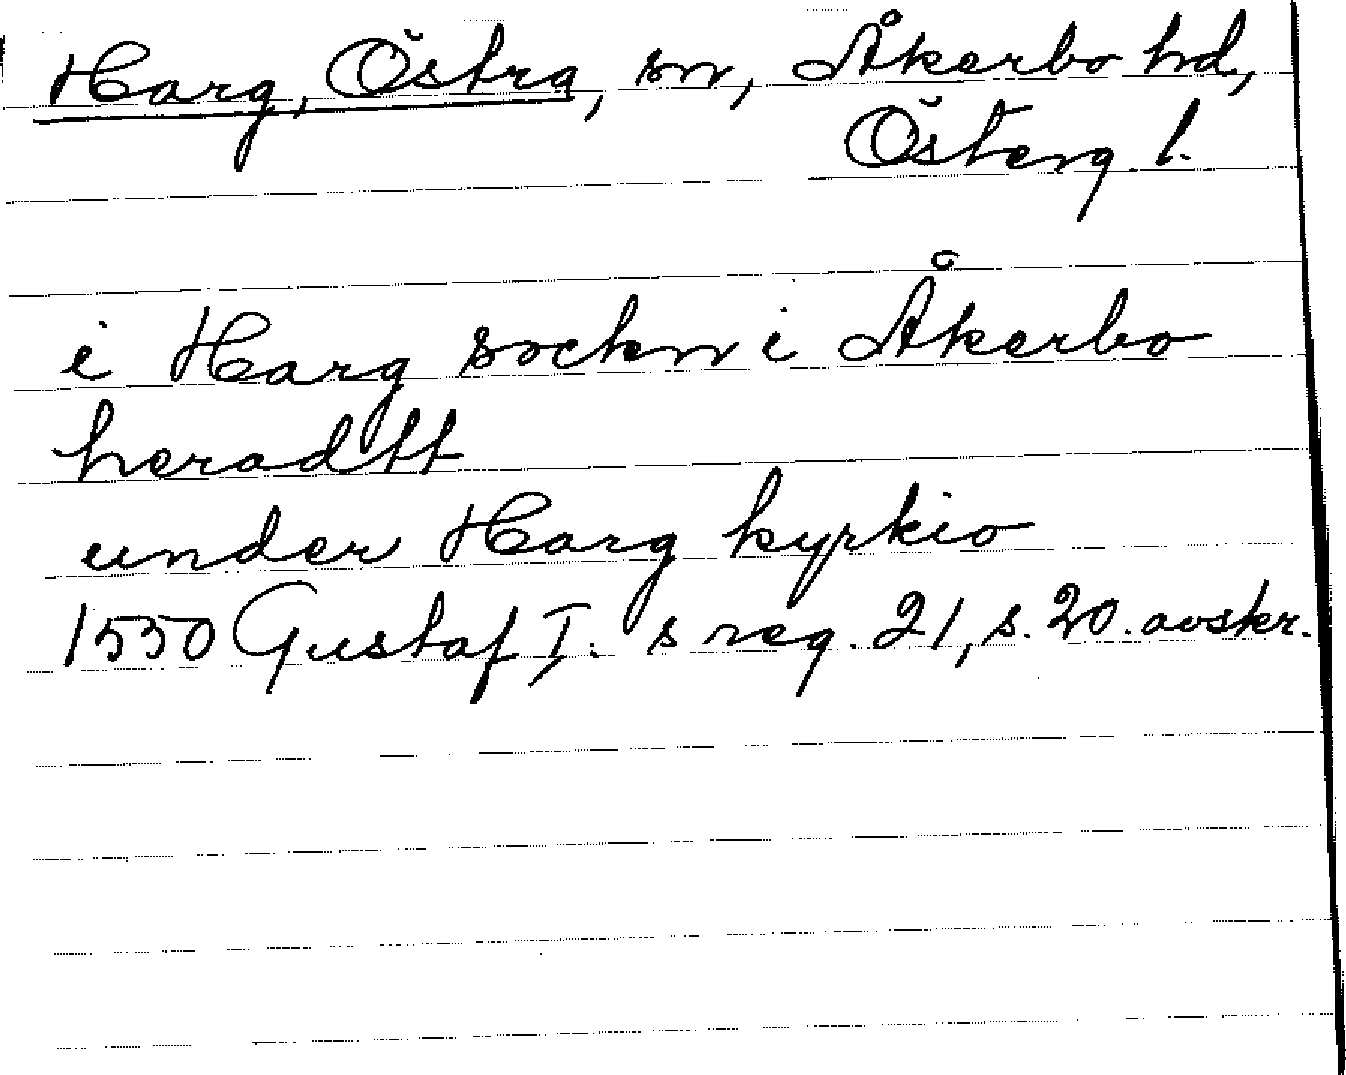 Harg, Östra, sn, Åkerbo hd,
Österg. l.
i Harg sockn i Åkerbo
heradtt
under Harg kyrkio
1550 Gustaf I:s reg. 21, s. 20. avskr.